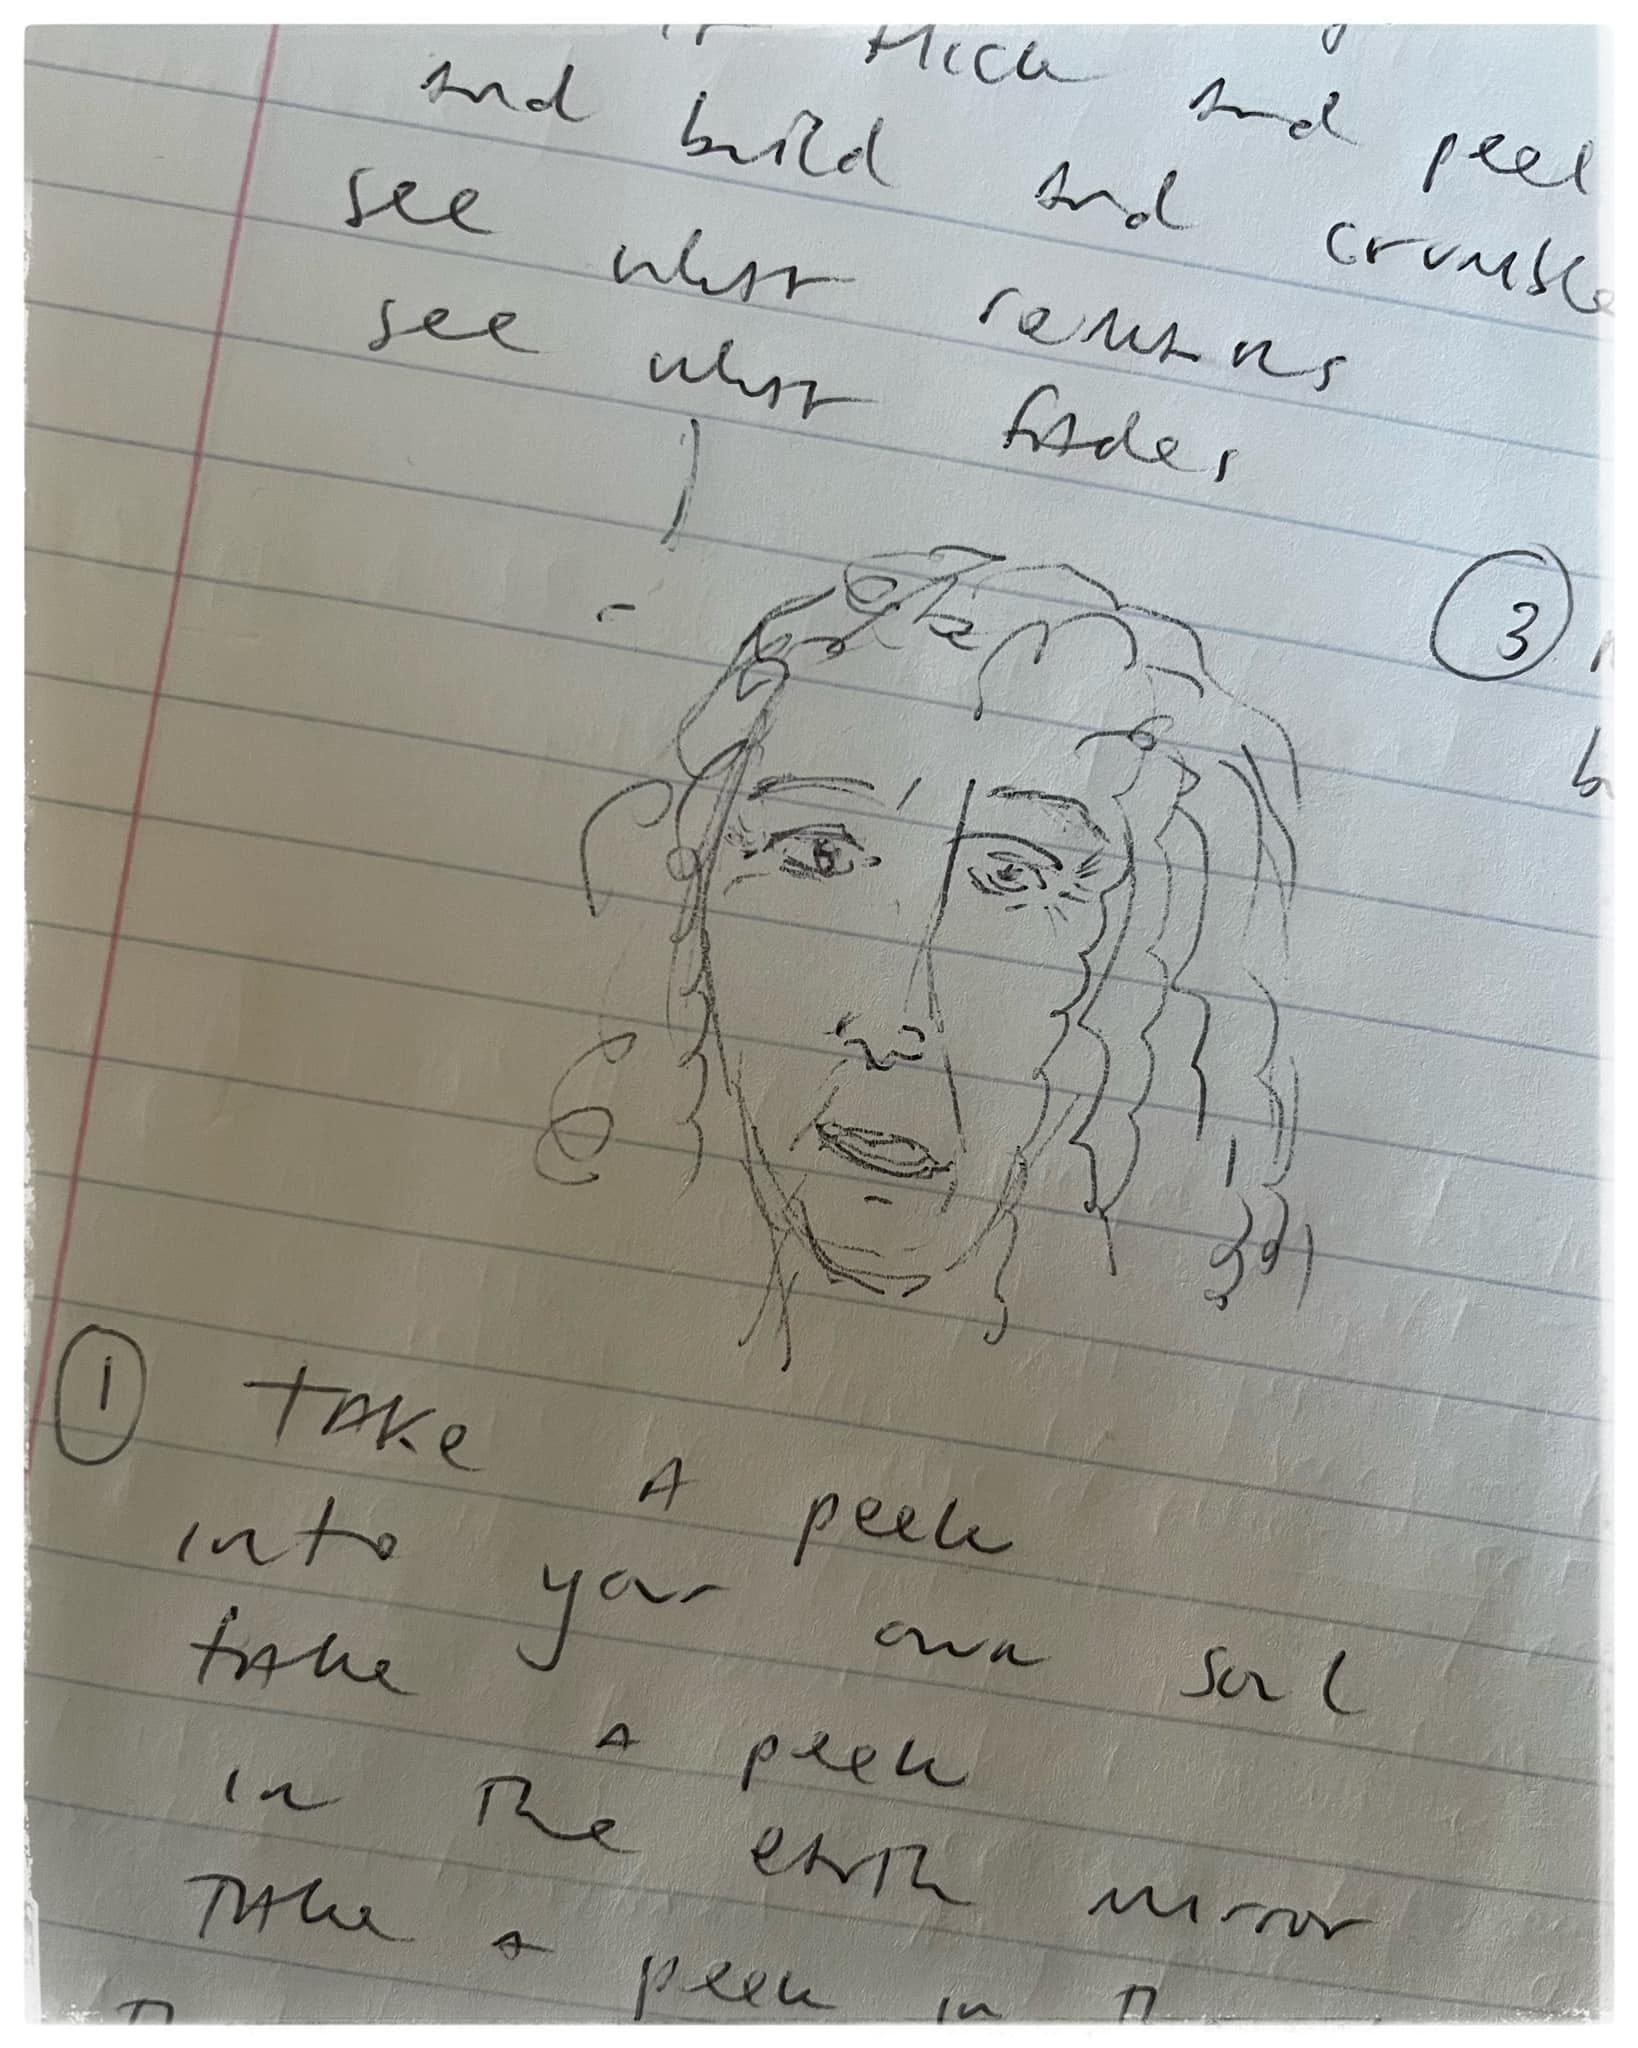 thick and peel
and build and crumble
see what remains
see what fades
3
1 take a peek
into your own soul
take a peek
in the earth mirror
take a peek in